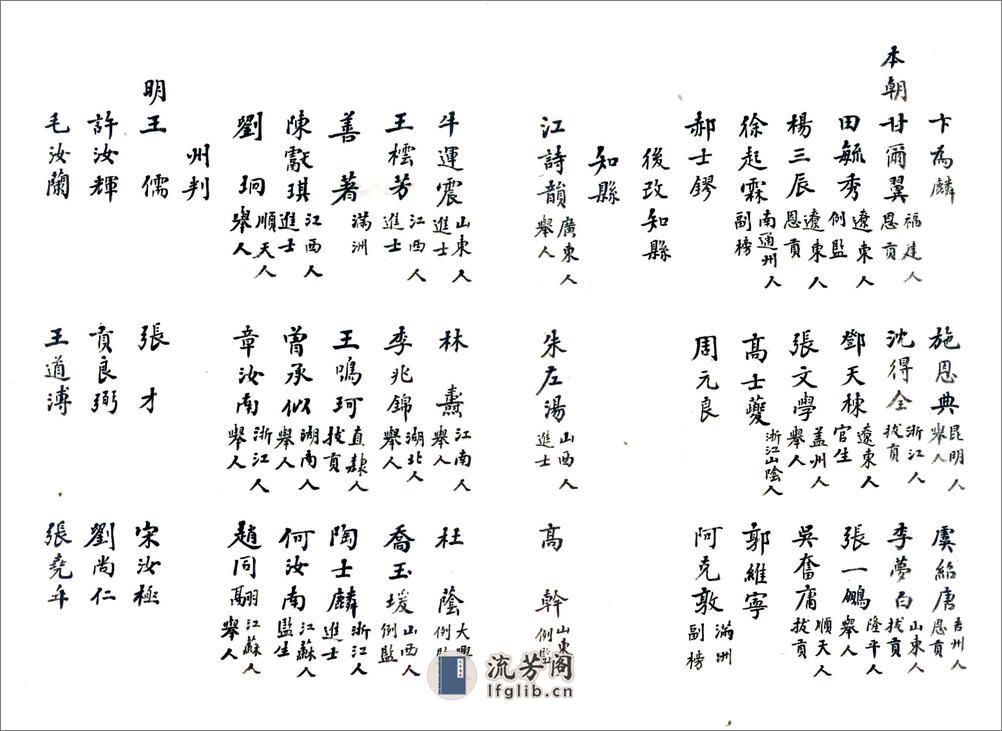 卞為麟 施恩典昆明人舉人 虞紹唐吉州人恩貢
本朝甘爾翼福建人恩貢 沈得全浙江人拔貢 李夢白山東人拔貢
田毓秀遼東人例監 鄧天棟遼東人官生 張一鵬隆平人舉人
楊三辰遼東人恩貢 張文學蓋州人舉人 吳奮庸順天人拔貢
徐起霖南通州人副榜 高士夔浙江山陰人 郭維寧
郝士鏐 周元良 阿克敦滿洲副榜
後改知縣
知縣
江詩韻廣東人舉人 朱左湯山西人進士 高幹山東例監
牛運震山東人進士 林燾江南人舉人 杜蔭大興例
王橒芳江西人進士 季兆錦湖北人舉人 喬玉堫山西人例監
善著滿洲 王鳴珂直隸人拔貢 陶士麟浙江人進士
陳獻琪江西人進士 曾承似湖南人舉人 何汝南江蘇人監生
劉珦順天人舉人 章汝南浙江人舉人 趙同翮江蘇人舉人
州判
明王儒 張才 宋汝極
許汝輝 貢良弼 劉尚仁
毛汝蘭 王道溥 張堯年
流芳阁
lfglib.cn